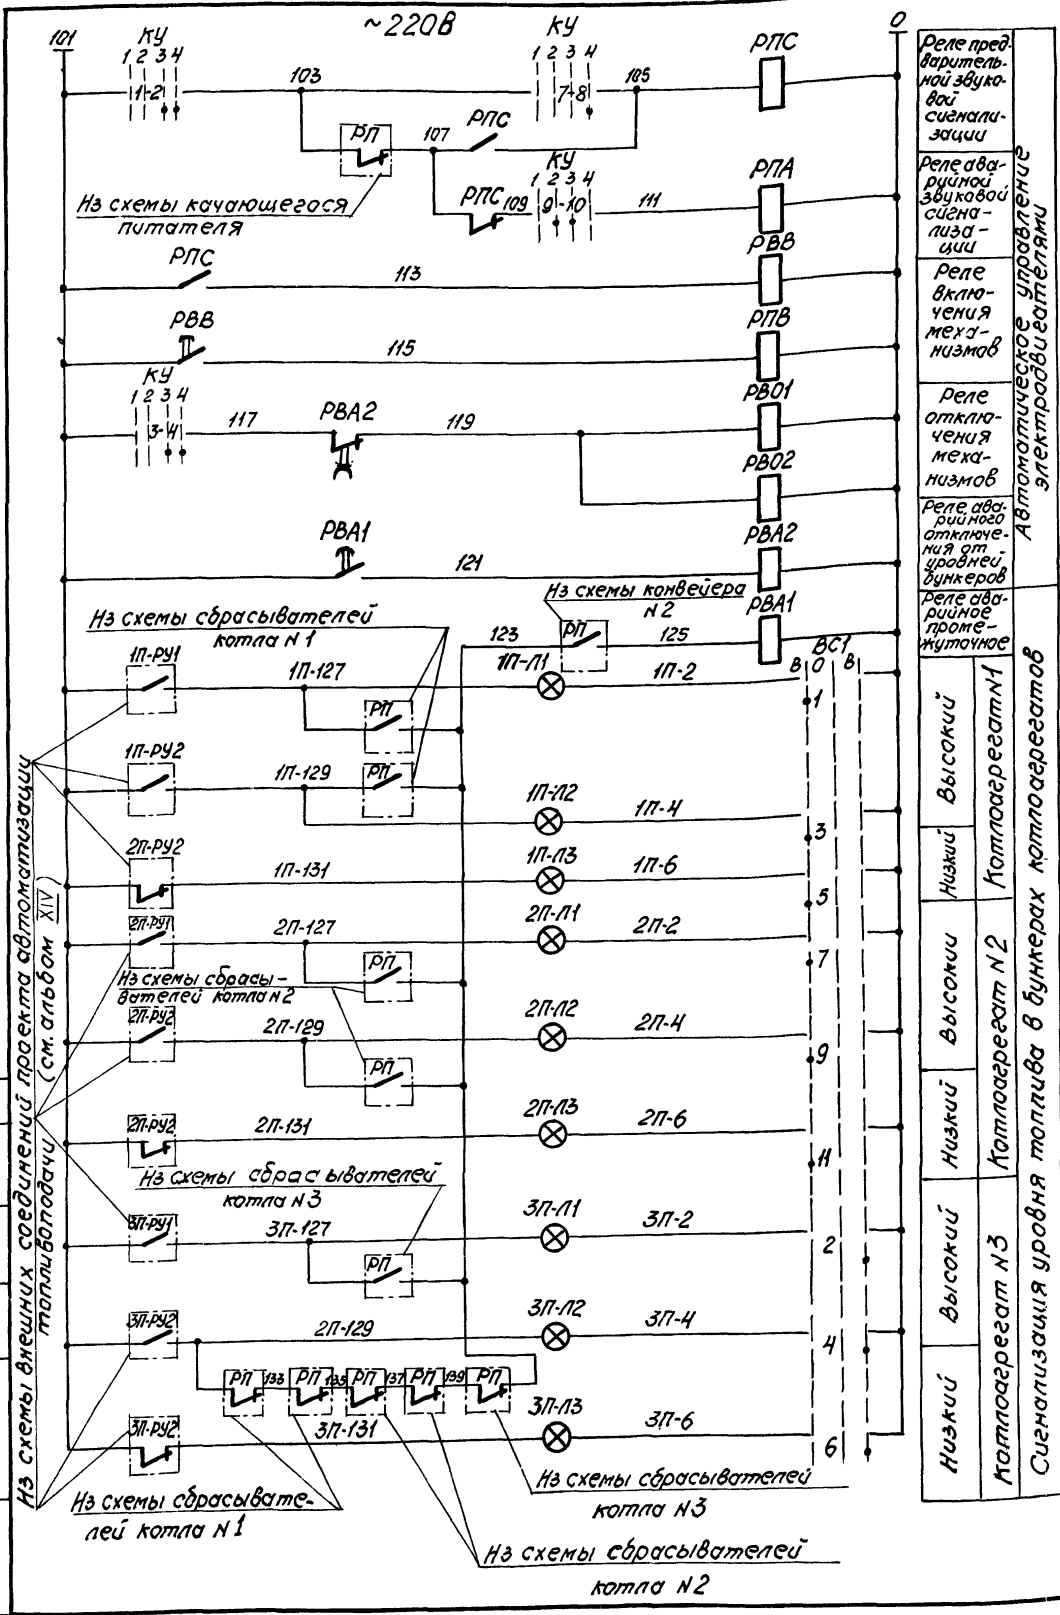 ~220В
101
0
КУ
1 2 3 4
1-2
103
КУ
1 2 3 4
7-8
105
РПС
РП
107
РПС
Из схемы качающегося
питателя
РПС
109
КУ
1 2 3 4
9-10
111
РПА
РПС
113
РВВ
РВВ
115
РПВ
КУ
1 2 3 4
3-4
117
РВА2
119
РВО1
РВО2
РВА1
121
РВА2
Из схемы конвейера
N2
Из схемы сбрасывателей
котла N1
123
РП
125
РВА1
ВС1
В О В
1П-РУ1
1П-127
1П-Л1
1П-2
1
РП
1П-РУ2
1П-129
РП
1П-Л2
1П-4
3
2П-РУ2
1П-131
1П-Л3
1П-6
5
2П-РУ1
2П-127
2П-Л1
2П-2
7
РП
Из схемы сбрасы-
вателей котла N2
2П-РУ2
2П-129
2П-Л2
2П-4
9
РП
2П-РУ2
2П-131
2П-Л3
2П-6
11
Из схемы сбрасывателей
котла N3
3П-РУ1
3П-127
3П-Л1
3П-2
2
РП
3П-РУ2
2П-129
3П-Л2
3П-4
4
РП 133 РП 135 РП 137 РП 139 РП
3П-РУ2
3П-131
3П-Л3
3П-6
6
Из схемы сбрасывате-
лей котла N1
Из схемы сбрасывателей
котла N3
Из схемы сбрасывателей
котла N2
Из схемы внешних соединений проекта автоматизации
топливоподачи (см. альбом XIV)
Реле пред-
варитель-
ной звуко-
вой
сигнали-
зации
Реле ава-
рийной
звуковой
сигна-
лиза-
ции
Реле
включе-
чения
меха-
низмов
Реле
отклю-
чения
меха-
низмов
Реле ава-
рийного
отключе-
ния от
уровней
бункеров
Реле ава-
рийное
проме-
жуточное
Автоматическое управление
электродвигателями
Высокий
Низкий
Котлоагрегат N1
Высокий
Низкий
Котлоагрегат N2
Высокий
Низкий
Котлоагрегат N3
Сигнализация уровня топлива в бункерах котлоагрегатов